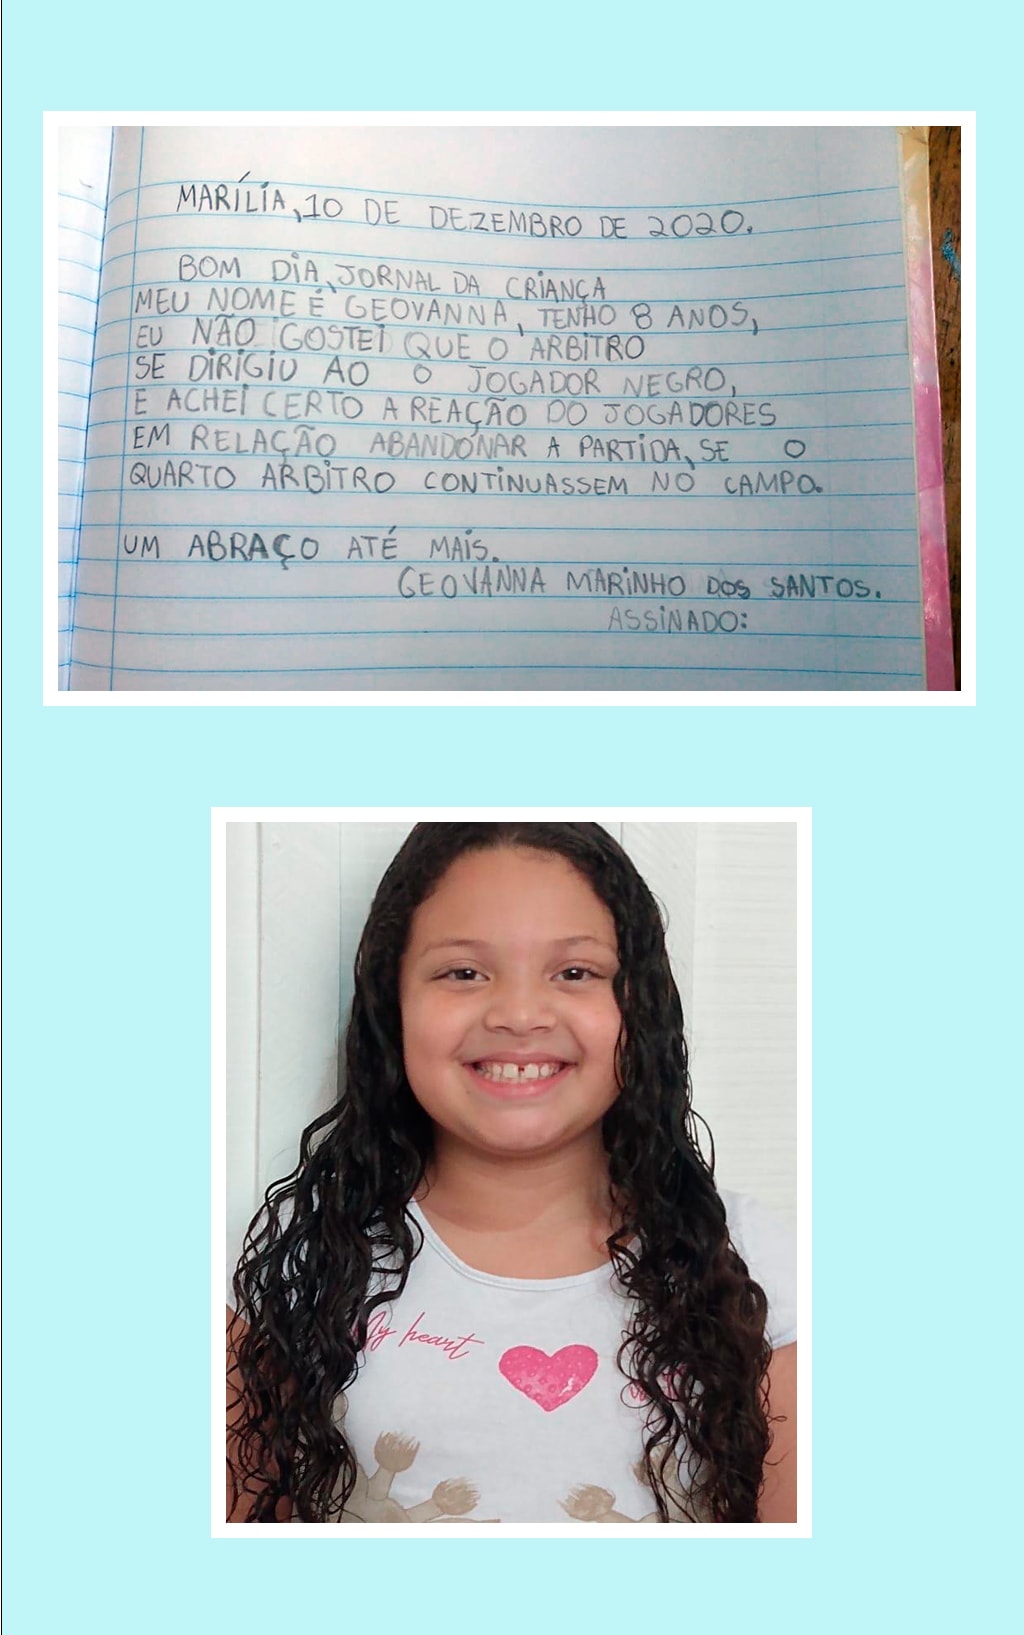 MARÍLIA, 10 DE DEZEMBRO DE 2020.
BOM DIA, JORNAL DA CRIANÇA
MEU NOME É GEOVANNA, TENHO 8 ANOS,
EU NÃO GOSTEI QUE O ARBITRO
SE DIRIGIU AO O JOGADOR NEGRO,
E ACHEI CERTO A REAÇÃO DO JOGADORES
EM RELAÇÃO ABANDONAR A PARTIDA, SE O
QUARTO ARBITRO CONTINUASSEM NO CAMPO.
UM ABRAÇO ATÉ MAIS.
GEOVANNA MARINHO DOS SANTOS.
ASSINADO:
My heart